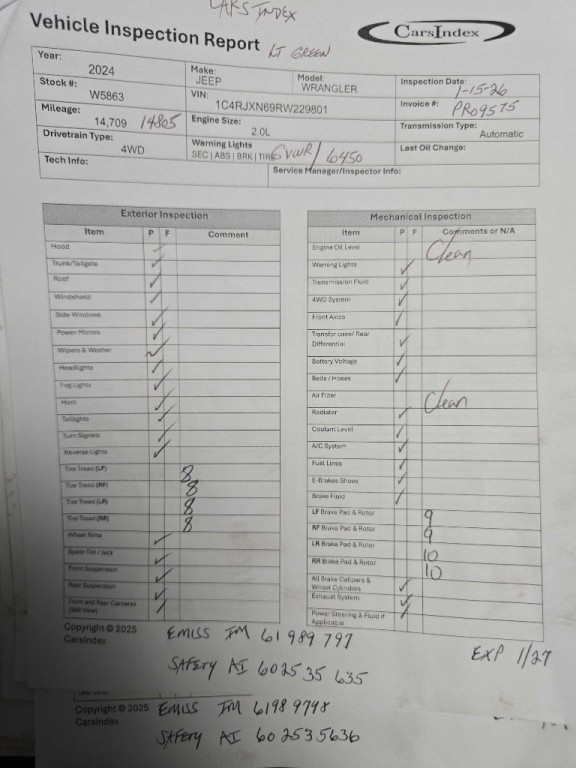 CARS INDEX
Vehicle Inspection Report LT GREEN
CarsIndex
Year: 2024
Make: JEEP
Model: WRANGLER
Inspection Date: 1-15-26
Stock #: W5863
VIN: 1C4RJXN69RW229801
Invoice #: PRO9575
Mileage: 14,709 14805
Engine Size: 2.0L
Transmission Type: Automatic
Drivetrain Type: 4WD
Warning Lights
SEC | ABS | BRK | TIRE GVWR/ 6450
Last Oil Change:
Tech Info:
Service Manager/Inspector Info:
Exterior Inspection
Item P F Comment
Hood
Trunk/Tailgate
Roof
Windshield
Side Windows
Power Mirrors
Wipers & Washer
Headlights
Fog Lights
Horn
Taillights
Turn Signals
Reverse Lights
Tire Tread (LF) 8
Tire Tread (RF) 8
Tire Tread (LR) 8
Tire Tread (RR) 8
Wheel Rims
Spare Tire / Jack
Front Suspension
Rear Suspension
Front and Rear Cameras
(360 View)
Mechanical Inspection
Item P F Comments or N/A
Engine Oil Level Clean
Warning Lights
Transmission Fluid
4WD System
Front Axles
Transfer case/ Rear
Differential
Battery Voltage
Belts / Hoses
Air Filter Clean
Radiator
Coolant Level
A/C System
Fuel Lines
E-Brakes Shoes
Brake Fluid
LF Brake Pad & Rotor 9
RF Brake Pad & Rotor 9
LR Brake Pad & Rotor 10
RR Brake Pad & Rotor 10
All Brake Calipers &
Wheel Cylinders
Exhaust System
Power Steering & Fluid if
Applicable
Copyright © 2025
CarsIndex
EMISS IM 61989797
SAFETY AI 602535635
EXP 1/27
Copyright © 2025
CarsIndex
EMISS IM 61989798
SAFETY AI 602535636